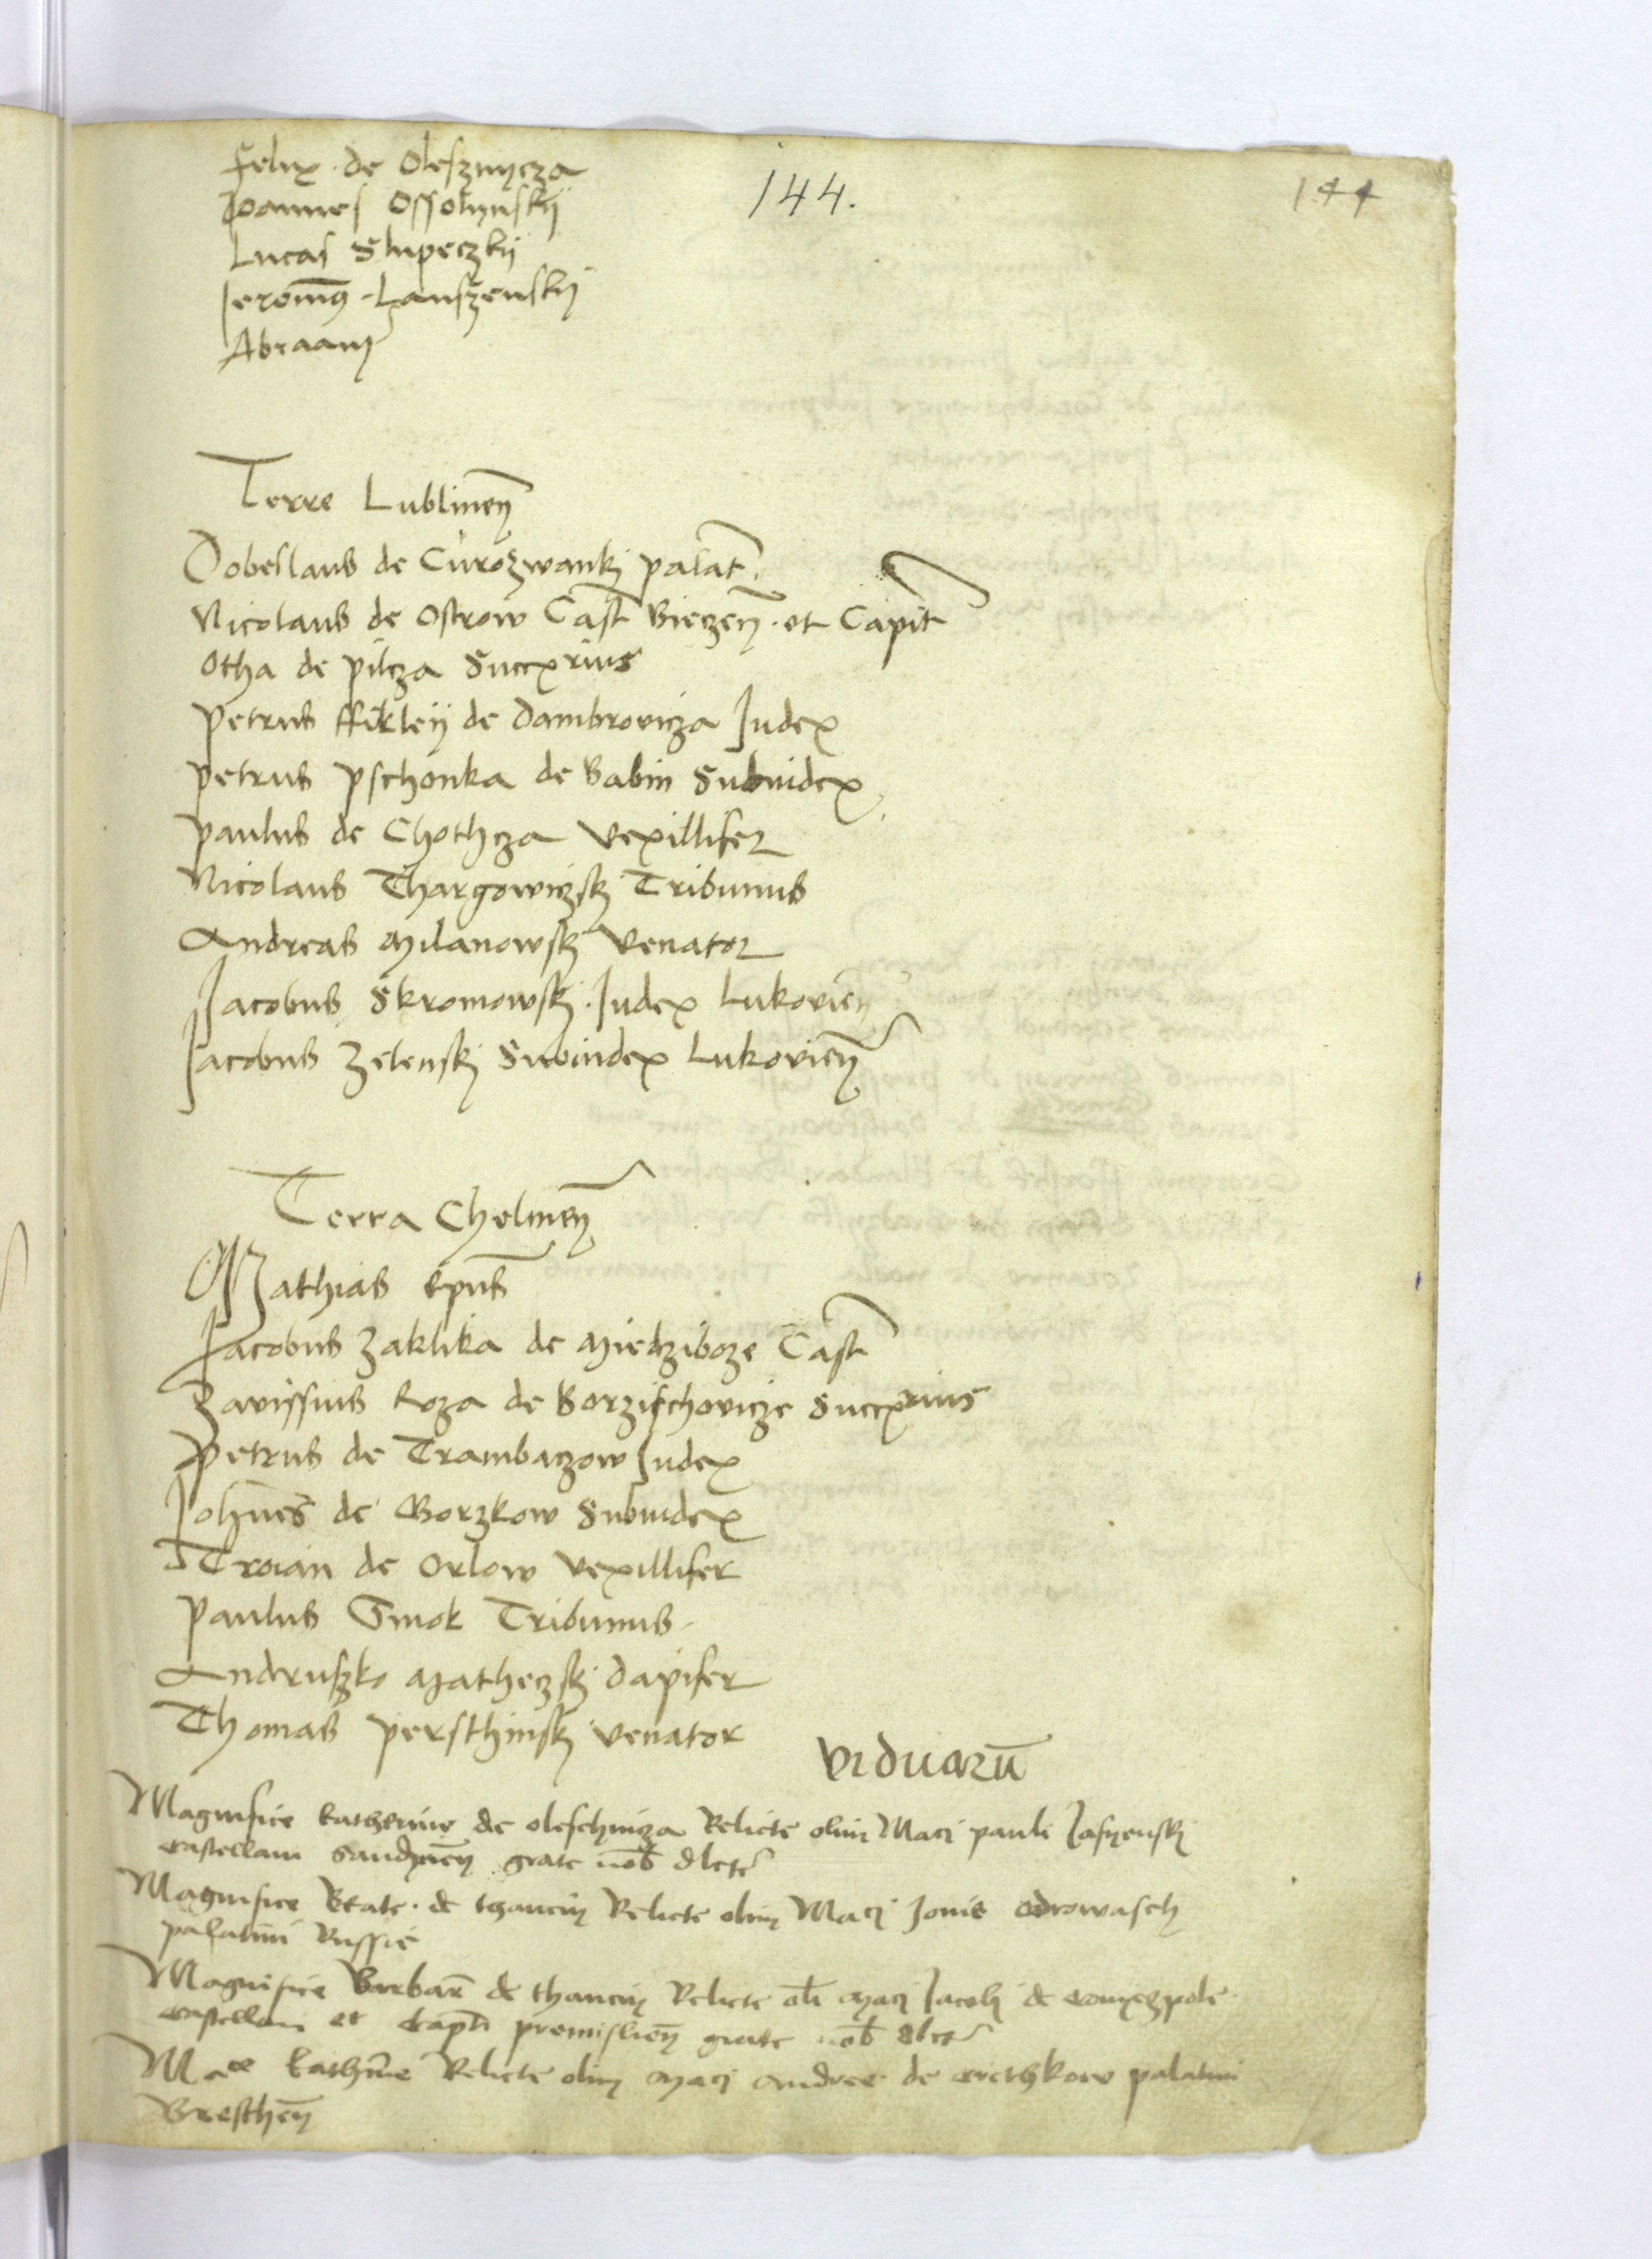 144.
144
Felix de Olesznycza
Joannes Ossolynskij
Lucas Slupeczkij
Jeronim9 Lanszenskij
Abraam
Terre Lublineñ
Dobeslaus de Curozwankj palat.
Nicolaus de Ostrow Cast Bieczeñ et Capit
Otha de pilcza Succxrius
petrus ffirleÿ de Dambrovicza Judex
petrus pschonka de Babin Subiudex
paulus de Chothcza vexillifer
Nicolaus Thargowiczskj Tribunus
Andreas Milanowskj venator
Jacobus Skromowskj Judex Lukovieñ
Jacobus Zelenskj Subiudex Lukovieñ
Terra Chelmeñ
Mathias epus
Jacobus Zaklika de Miedziboze Cast
Zavissius Roza de Borzischovicze Succxrius
petrus de Trambaczow Judex
Johnes de Borzkow Subiudex
Troian de Orlow vexillifer
paulus Smok Tribunus
Andruszko Matheczskj Dapifer
Thomas persthinskj venator
viduarū
Magnifice katherine de oleschnicza Relicte olim Maci pauli Jasyenskj
castellani Sandomieñ grate nob dlcte
Magnifice Beate de thancin Relicte olim Maci Jonis odrowasch
palatini Russie
Magnifice Barbare de thancin Relicte oli Maci Jacobi de conyeczpole
castellani et capti premislieñ grate nob dlcte
Mce kathrine Relicte olim Maci Andree de crethkow palatini
Bresthen